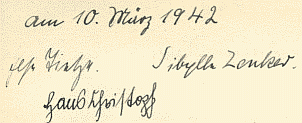 am 10. März 1942
Ilse Tietze. Sibylle Zenker.
Hans Christoph